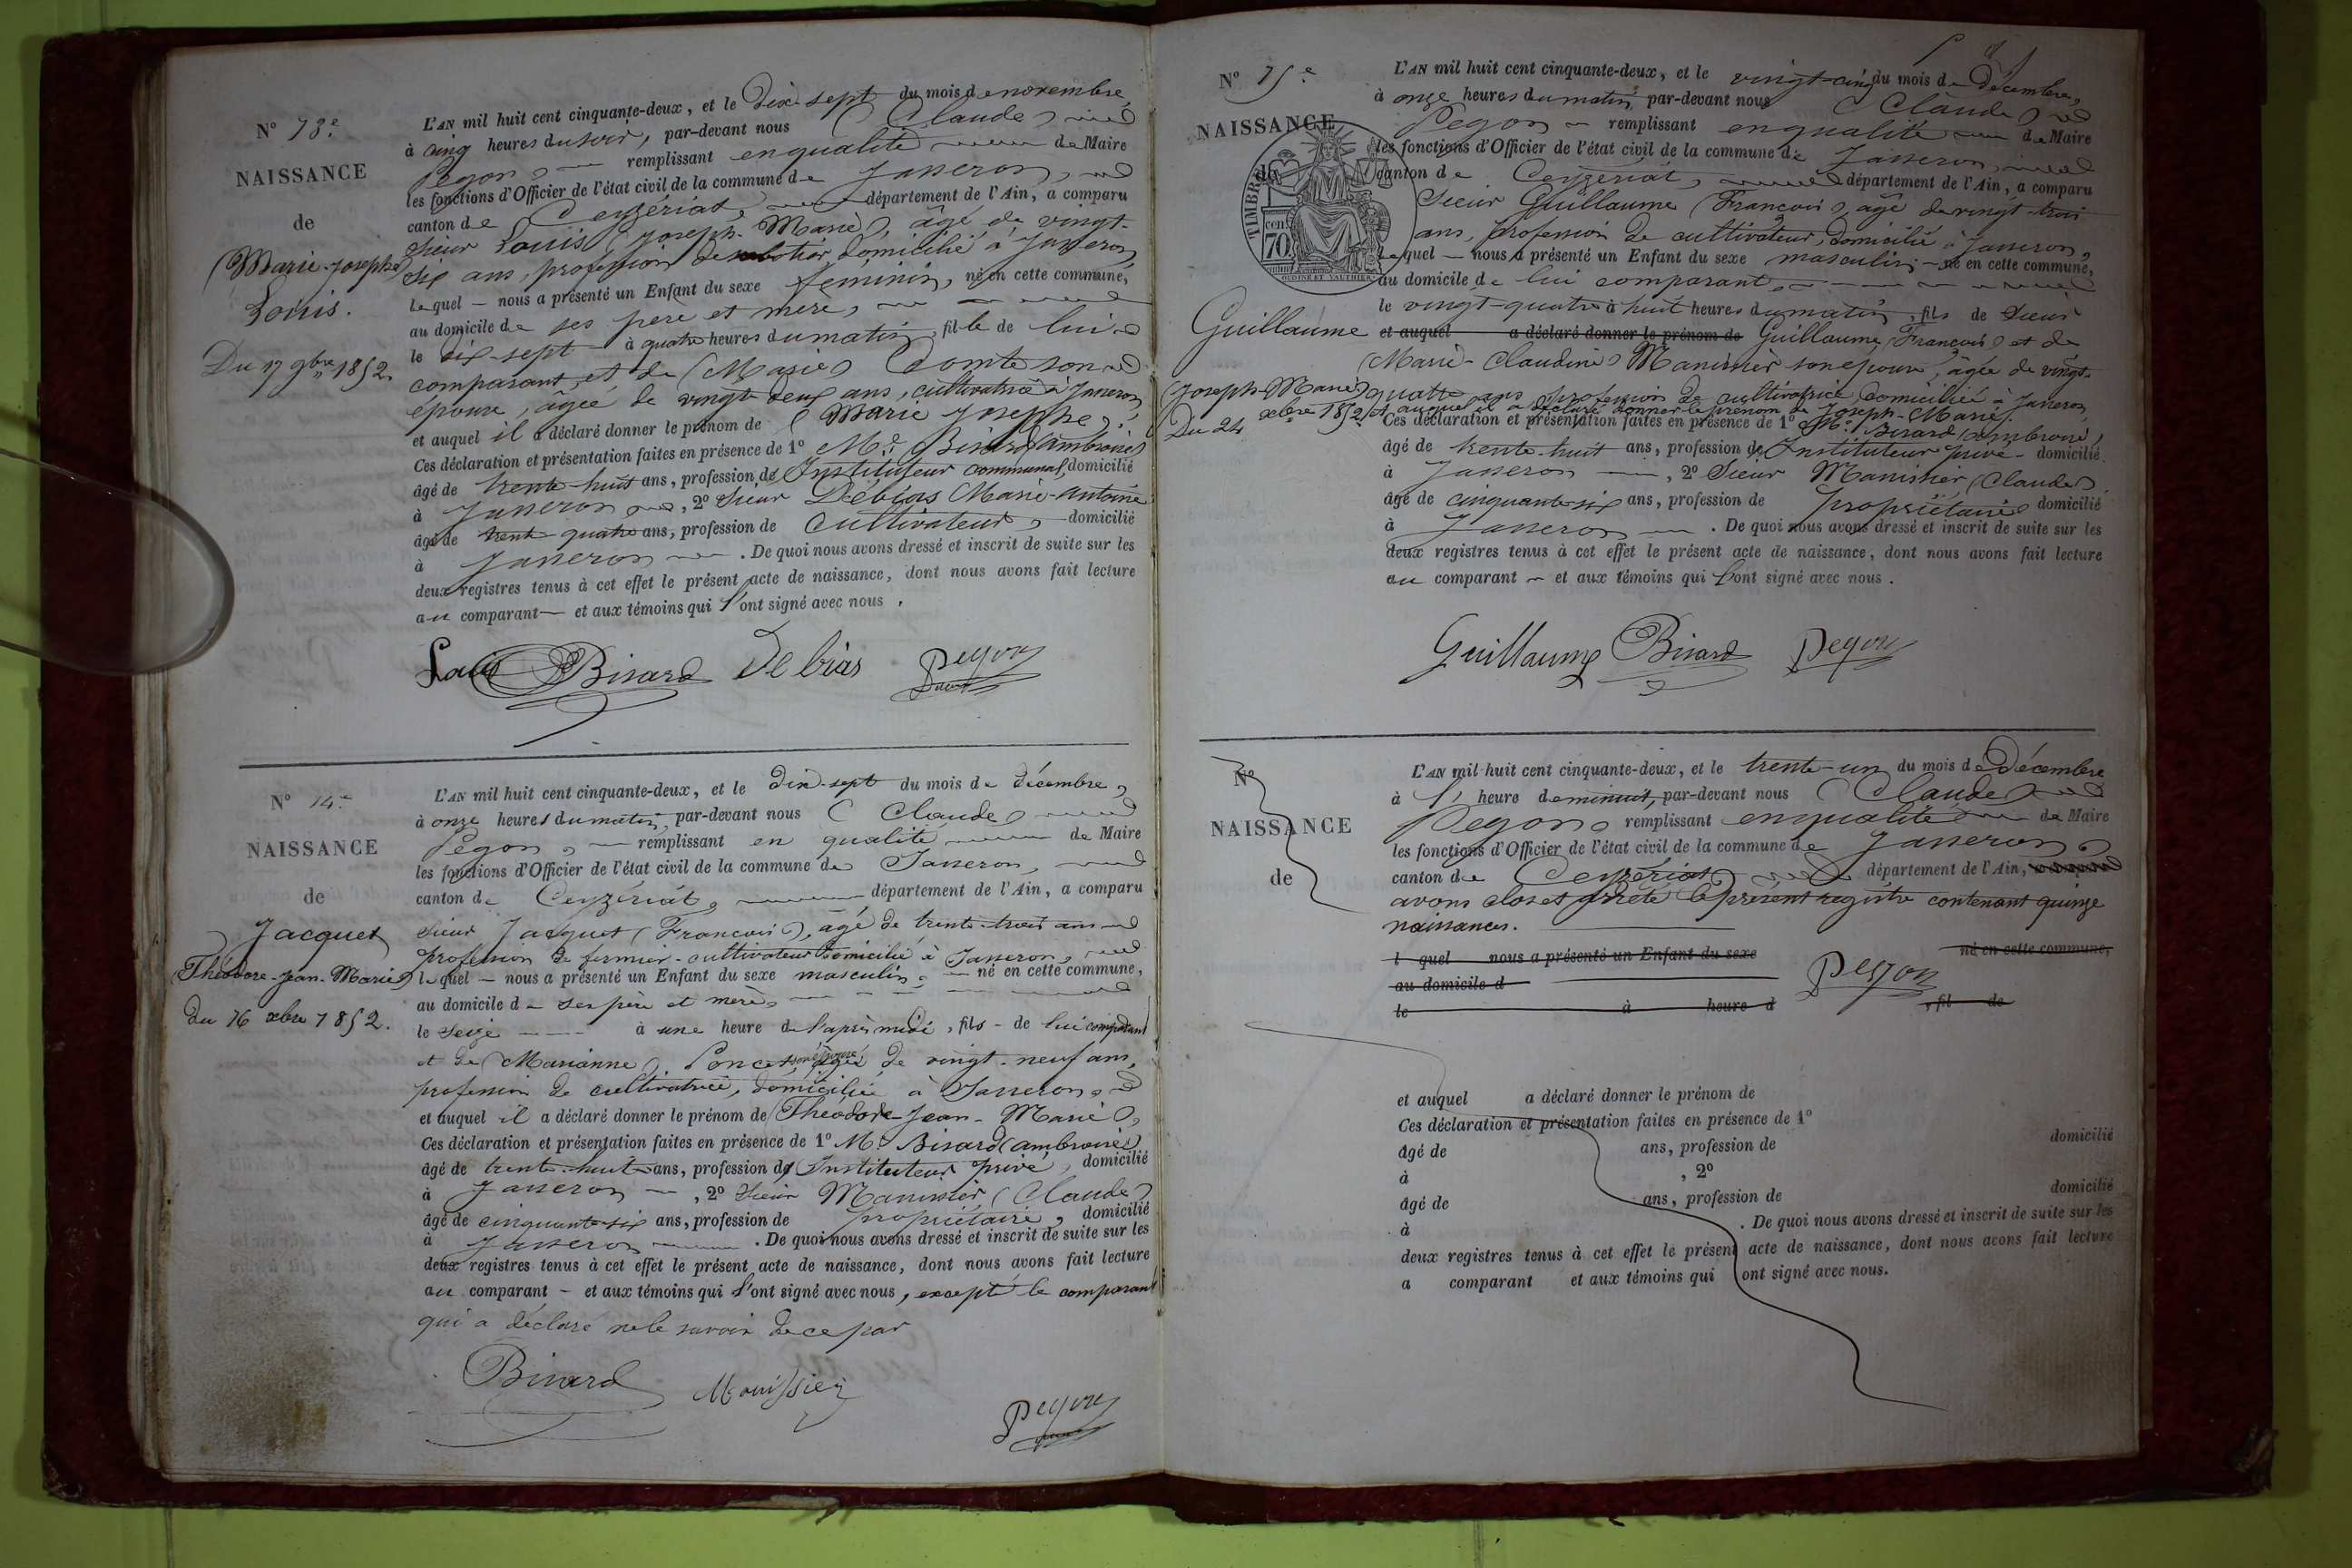 N° 13e
NAISSANCE
de
(Marie-Josephe)
Louis.
Du 17 9bre 1852.
L'AN mil huit cent cinquante-deux, et le dix-sept du mois de novembre,
à cinq heures du soir, par-devant nous (Claude)
Pegon, remplissant en qualité de Maire
les fonctions d'Officier de l'état civil de la commune de Jasseron,
canton de Ceyzériat, département de l'Ain, a comparu
Sieur Louis (Joseph-Marie), âgé de vingt-
six ans, profession de sabotier domicilié à Jasseron,
lequel — nous a présenté un Enfant du sexe féminin, né en cette commune,
au domicile de ses père et mère,
le dix-sept à quatre heures du matin, fille de lui
comparant, et de (Marie) Comte son
épouse, âgée de vingt-deux ans, cultivatrice à Jasseron,
et auquel il a déclaré donner le prénom de (Marie Josephe).
Ces déclaration et présentation faites en présence de 1° Mr. Birard (ambroise)
âgé de trente-huit ans, profession de Instituteur communal, domicilié
à Jasseron, 2° Sieur Débias Marie-Antoine
âgé de trente-quatre ans, profession de Cultivateur, domicilié
à Jasseron. De quoi nous avons dressé et inscrit de suite sur les
deux registres tenus à cet effet le présent acte de naissance, dont nous avons fait lecture
au comparant — et aux témoins qui l'ont signé avec nous,
Louis Birard Debias Pegon
N° 14e
NAISSANCE
de
Jacquet
(Théodore-Jean-Marie)
Du 16 xbre 1852.
L'AN mil huit cent cinquante-deux, et le Dix-sept du mois de décembre,
à onze heures du matin, par-devant nous (Claude)
Pegon, remplissant en qualité de Maire
les fonctions d'Officier de l'état civil de la commune de Jasseron,
canton de Ceyzériat, département de l'Ain, a comparu
Sieur Jacquet (François), âgé de trente-trois ans
profession de fermier-cultivateur domicilié à Jasseron,
lequel — nous a présenté un Enfant du sexe masculin, né en cette commune,
au domicile de ses père et mère,
le seize à une heure de l'après midi, fils de lui comparant
et de (Marianne) Poncet, son épouse âgée de vingt-neuf ans,
profession de cultivatrice, domiciliée à Jasseron,
et auquel il a déclaré donner le prénom de (Théodore-Jean-Marie),
Ces déclaration et présentation faites en présence de 1° Mr. Birard (ambroise)
âgé de trente-huit ans, profession de Instituteur privé, domicilié
à Jasseron, 2° Sieur Manissier (Claude)
âgé de cinquante-six ans, profession de propriétaire, domicilié
à Jasseron. De quoi nous avons dressé et inscrit de suite sur les
deux registres tenus à cet effet le présent acte de naissance, dont nous avons fait lecture
au comparant — et aux témoins qui l'ont signé avec nous, excepté le comparant
qui a déclaré ne le savoir de ce par
Birard Manissier
Pegon
N° 15e
NAISSANCE
de
TIMBRE
70 cent
Guillaume
(Joseph-Marie)
Du 24 xbre 1852
L'AN mil huit cent cinquante-deux, et le vingt-cinq du mois de Décembre,
à onze heures du matin, par-devant nous (Claude)
Pegon remplissant en qualité de Maire
les fonctions d'Officier de l'état civil de la commune de Jasseron,
canton de Ceyzériat, département de l'Ain, a comparu
Sieur Guillaume (François), âgé de vingt-trois
ans, profession de cultivateur, domicilié à Jasseron,
lequel — nous a présenté un Enfant du sexe masculin, né en cette commune,
au domicile de lui comparant,
le vingt-quatre à huit heures du matin, fils de Sieur
et auquel a déclaré donner le prénom de Guillaume (François) et de
(Marie-Claudine) Manissier son épouse, âgée de vingt-
quatre ans profession de cultivatrice domiciliée à Jasseron,
et auquel il a déclaré donner le prénom de Joseph-Marie.
Ces déclaration et présentation faites en présence de 1° Mr. Birard (ambroise),
âgé de trente-huit ans, profession de Instituteur privé domicilié
à Jasseron, 2° Sieur Manissier (Claude)
âgé de cinquante-six ans, profession de propriétaire domicilié
à Jasseron. De quoi nous avons dressé et inscrit de suite sur les
deux registres tenus à cet effet le présent acte de naissance, dont nous avons fait lecture
au comparant — et aux témoins qui l'ont signé avec nous.
Guillaume Birard Pegon
N°
NAISSANCE
de
L'AN mil huit cent cinquante-deux, et le trente-un du mois de Décembre
à l' heure de minuit, par-devant nous (Claude)
Pegon, remplissant en qualité de Maire
les fonctions d'Officier de l'état civil de la commune de Jasseron,
canton de Ceyzériat département de l'Ain,
avons clos et arrêté le présent registre contenant quinze
naissances.
l quel nous a présenté un Enfant du sexe né en cette commune,
au domicile d
Pegon
le à heure d , fil de
et auquel a déclaré donner le prénom de
Ces déclaration et présentation faites en présence de 1°
âgé de ans, profession de domicilié
à , 2°
âgé de ans, profession de domicilié
à . De quoi nous avons dressé et inscrit de suite sur les
deux registres tenus à cet effet le présent acte de naissance, dont nous avons fait lecture
a comparant et aux témoins qui ont signé avec nous.